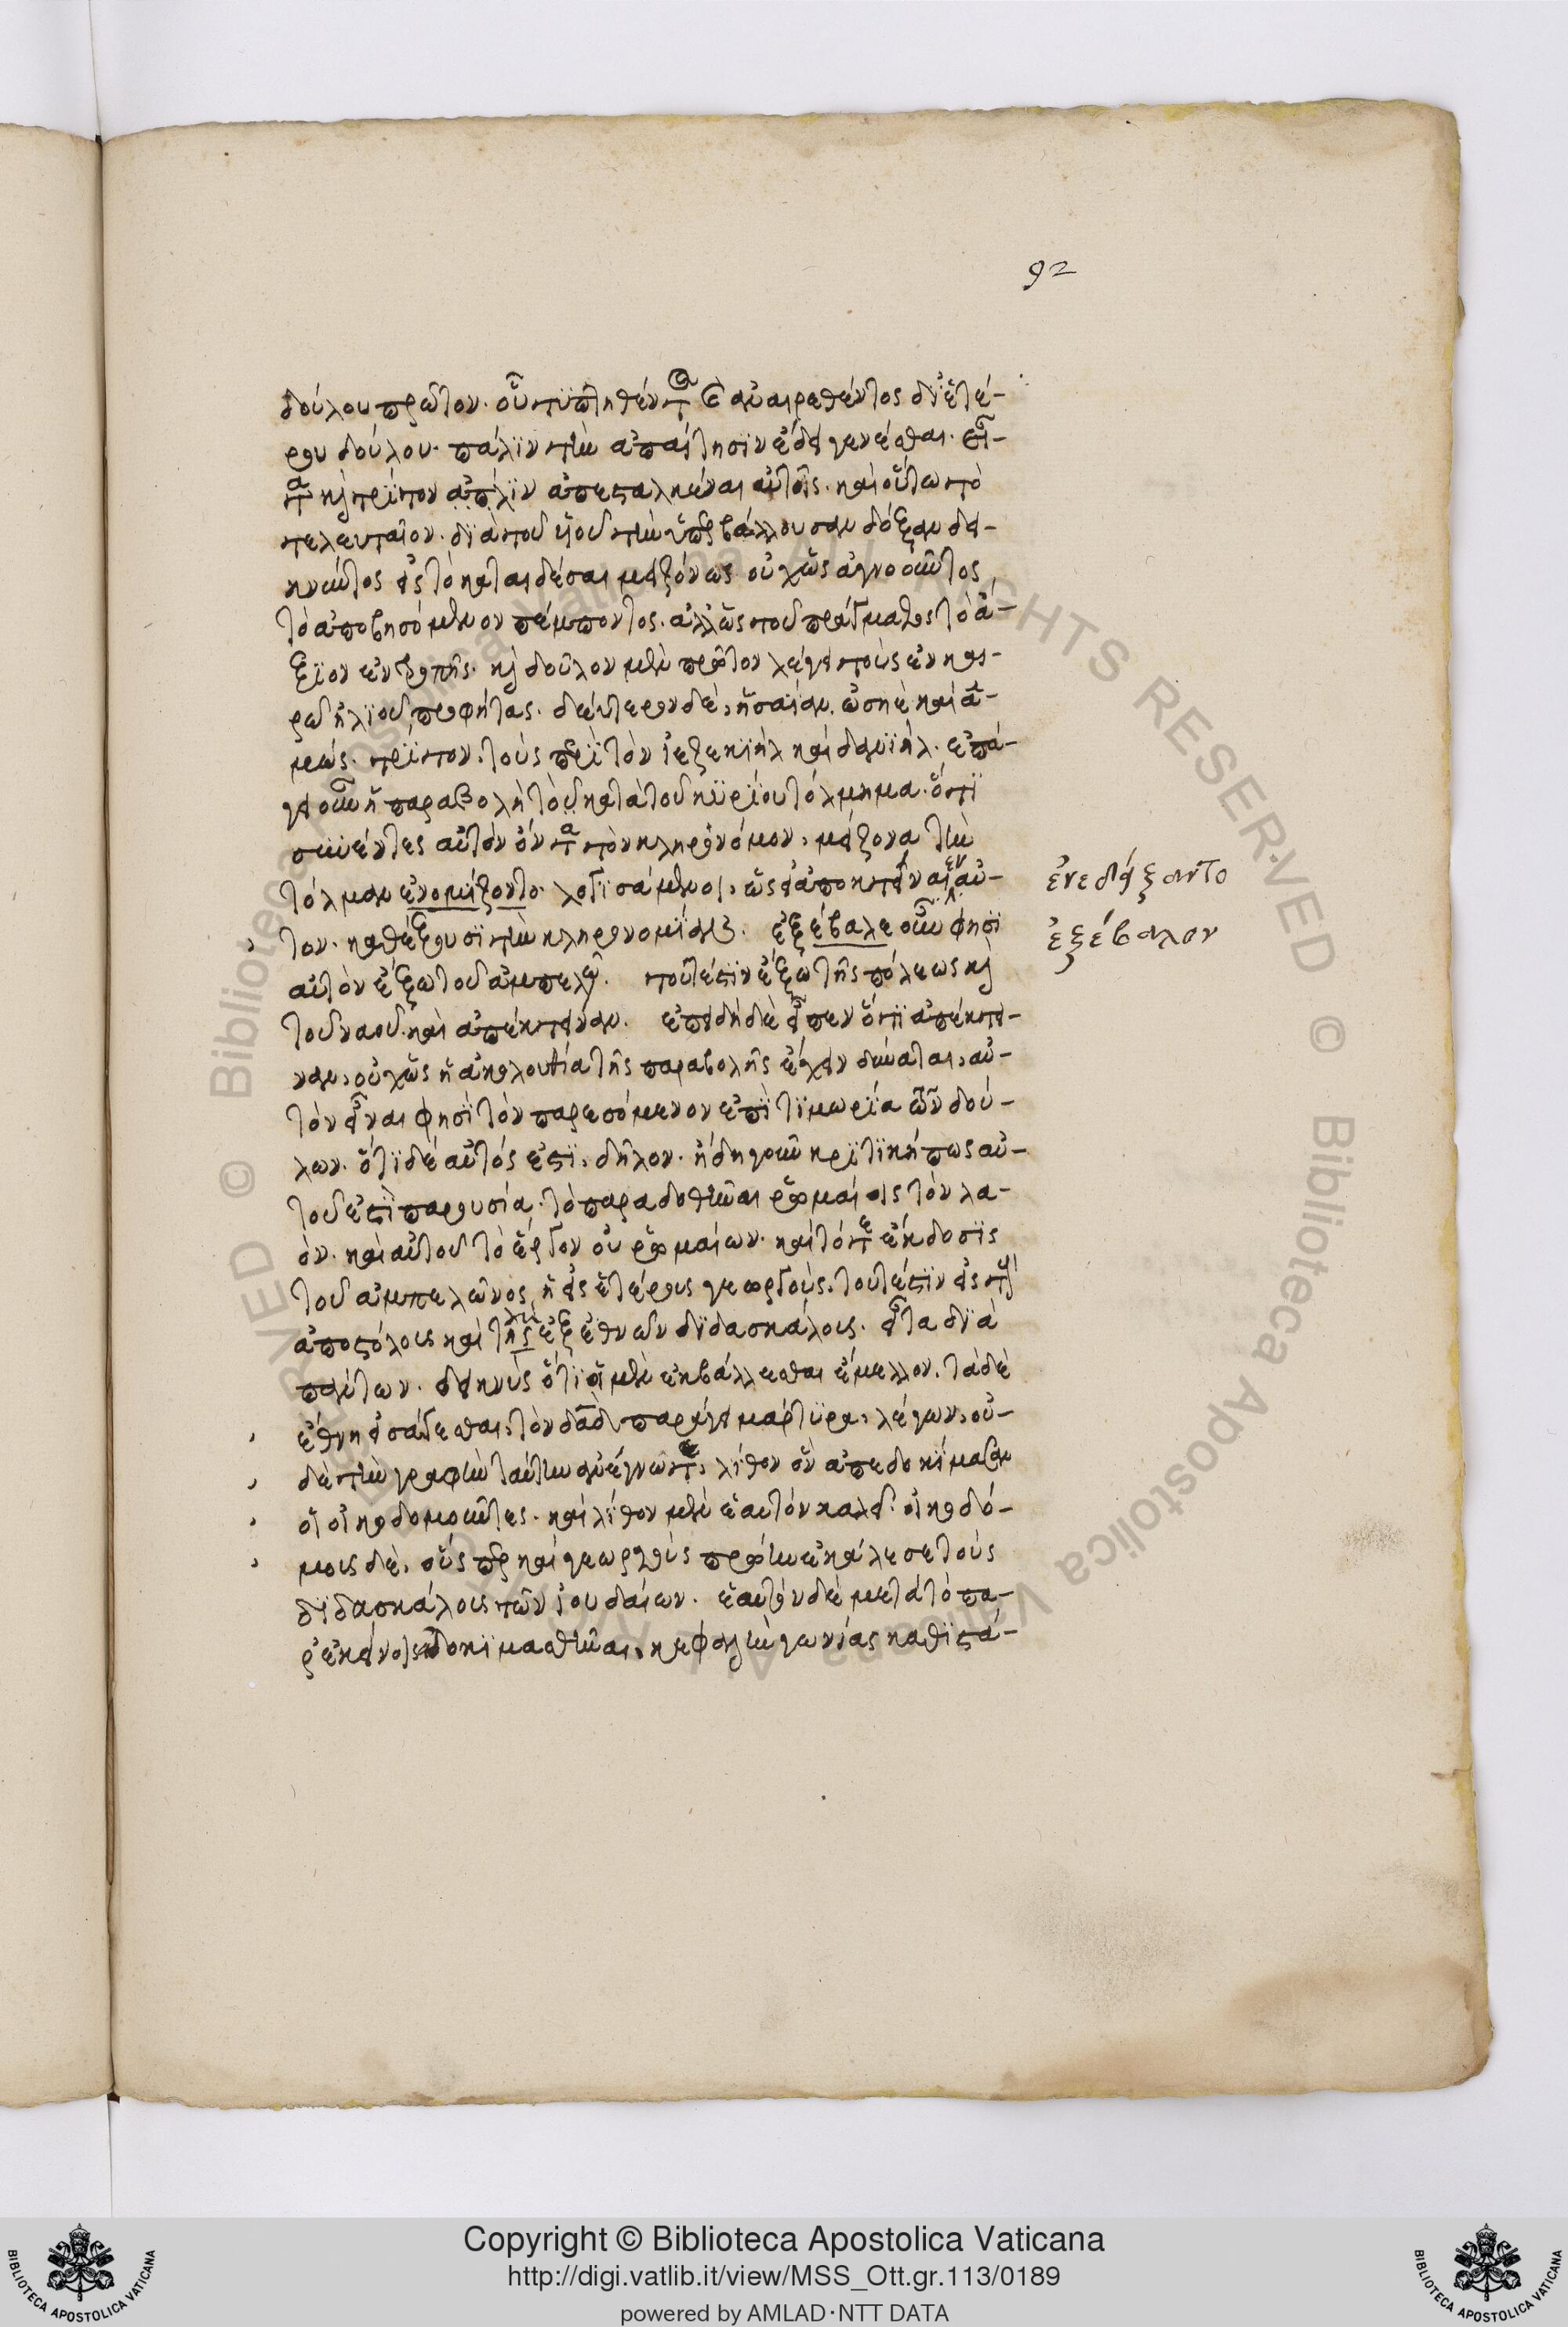 92
δούλου πρῶτον. οὗ τυπτηθέντος καὶ ἀναιρεθέντος δι' ἑτέ-
ρου δούλου. πάλιν τὴν ἀπαίτησιν ἔδει γενέσθαι. εἶ-
τα καὶ τρίτον ἀπεσταλκέναι αὐτοῖς. καὶ οὕτω τὸ
τελευταῖον. διὰ τοῦ υἱοῦ τὴν ὑπερβάλλουσαν δόξαν δει-
κνύντος εἰς τὸ καταιδέσαι μειζόνως οὐχ ὡς ἀγνοοῦντος
τὸ ἀποβησόμενον πέμποντος. ἀλλ' ὡς τοῦ πράγματος τὸ ἄ-
ξιον ἐντροπῆς. καὶ δοῦλον μὲν πρῶτον λέγει τοὺς ἐν και-
ρῷ ἡλιοῦ προφήτας. δεύτερον δὲ, ἡσαΐαν. ὡσηὲ καὶ ἀ-
μώς. τρίτον. τοὺς περὶ τὸν ἰεζεκιὴλ καὶ δανιήλ. ἐπά-
γει οὖν ἡ παραβολὴ τὸ κατὰ τοῦ κυρίου τόλμημα. ὅτι
συνέντες αὐτὸν ὄντα τὸν κληρονόμον, μείζονα τὴν
τόλμαν ἐνομίζοντο. λογισάμενοι, ὡς εἰ ἀποκτεῖναιεν αὐ-
τον. καθέξουσι τὴν κληρονομίαν. ἐξέβαλε οὖν φησὶ
αὐτὸν ἔξω τοῦ ἀμπελῶνος. τοῦτέστιν ἔξω τῆς πόλεως καὶ
τοῦ ναοῦ. καὶ ἀπέκτειναν. ἐπειδὴ δὲ εἶπεν ὅτι ἀπέκτει-
ναν, οὐχ ὡς ἡ ἀκολουθία τῆς παραβολῆς ἔχειν δύναται, αὐ-
τὸν εἶναι φησὶ τὸν παρεσόμενον ἐπὶ τιμωρία τῶν δού-
λων. ὅτι δὲ αὐτός ἐστι, δῆλον. ἤδη γοῦν κριτική πως αὐ-
τοῦ ἐστὶ παρουσία. τὸ παραδοθῆναι ῥωμαίοις τὸν λα-
όν. καὶ αὐτοῦ τὸ ἔργον οὐ ῥωμαίων. καὶ τότε ἔκδοσις
τοῦ ἀμπελῶνος, ἡ εἰς ἑτέρους γεωργούς. τουτέστιν εἰς τοὺς
ἀποστόλους καὶ τοὺς ἐξ ἐθνῶν διδασκάλους. εἶτα διὰ
πάντων. δεικνὺς ὅτι οἱ μὲν ἐκβάλλεσθαι ἔμελλον. τὰ δὲ
ἔθνη εἰσάγεσθαι, τὸν δαδ παράγει μάρτυρα, λέγων, οὐ-
δὲ τὴν γραφὴν ταύτην ἀνέγνωτε, λίθον ὃν ἀπεδοκίμασαν
οἱ οἰκοδομοῦντες. καὶ λίθον μὲν ἑαυτὸν καλεῖ. οἰκοδό-
μους δὲ, οὕς περ καὶ γεωργοὺς πρώην ἐκάλεσε τοὺς
διδασκάλους τῶν ἰουδαίων. ἑαυτὸν δὲ μετὰ τὸ πα-
ρ' ἐκείνοις ἀδοκιμασθῆναι, κεφαλὴν γωνίας καθιστά-
ἐνεδείξαντο
ἐξέβαλον
Copyright © Biblioteca Apostolica Vaticana
http://digi.vatlib.it/view/MSS_Ott.gr.113/0189
powered by AMLAD·NTT DATA
BIBLIOTECA APOSTOLICA VATICANA
BIBLIOTECA APOSTOLICA VATICANA